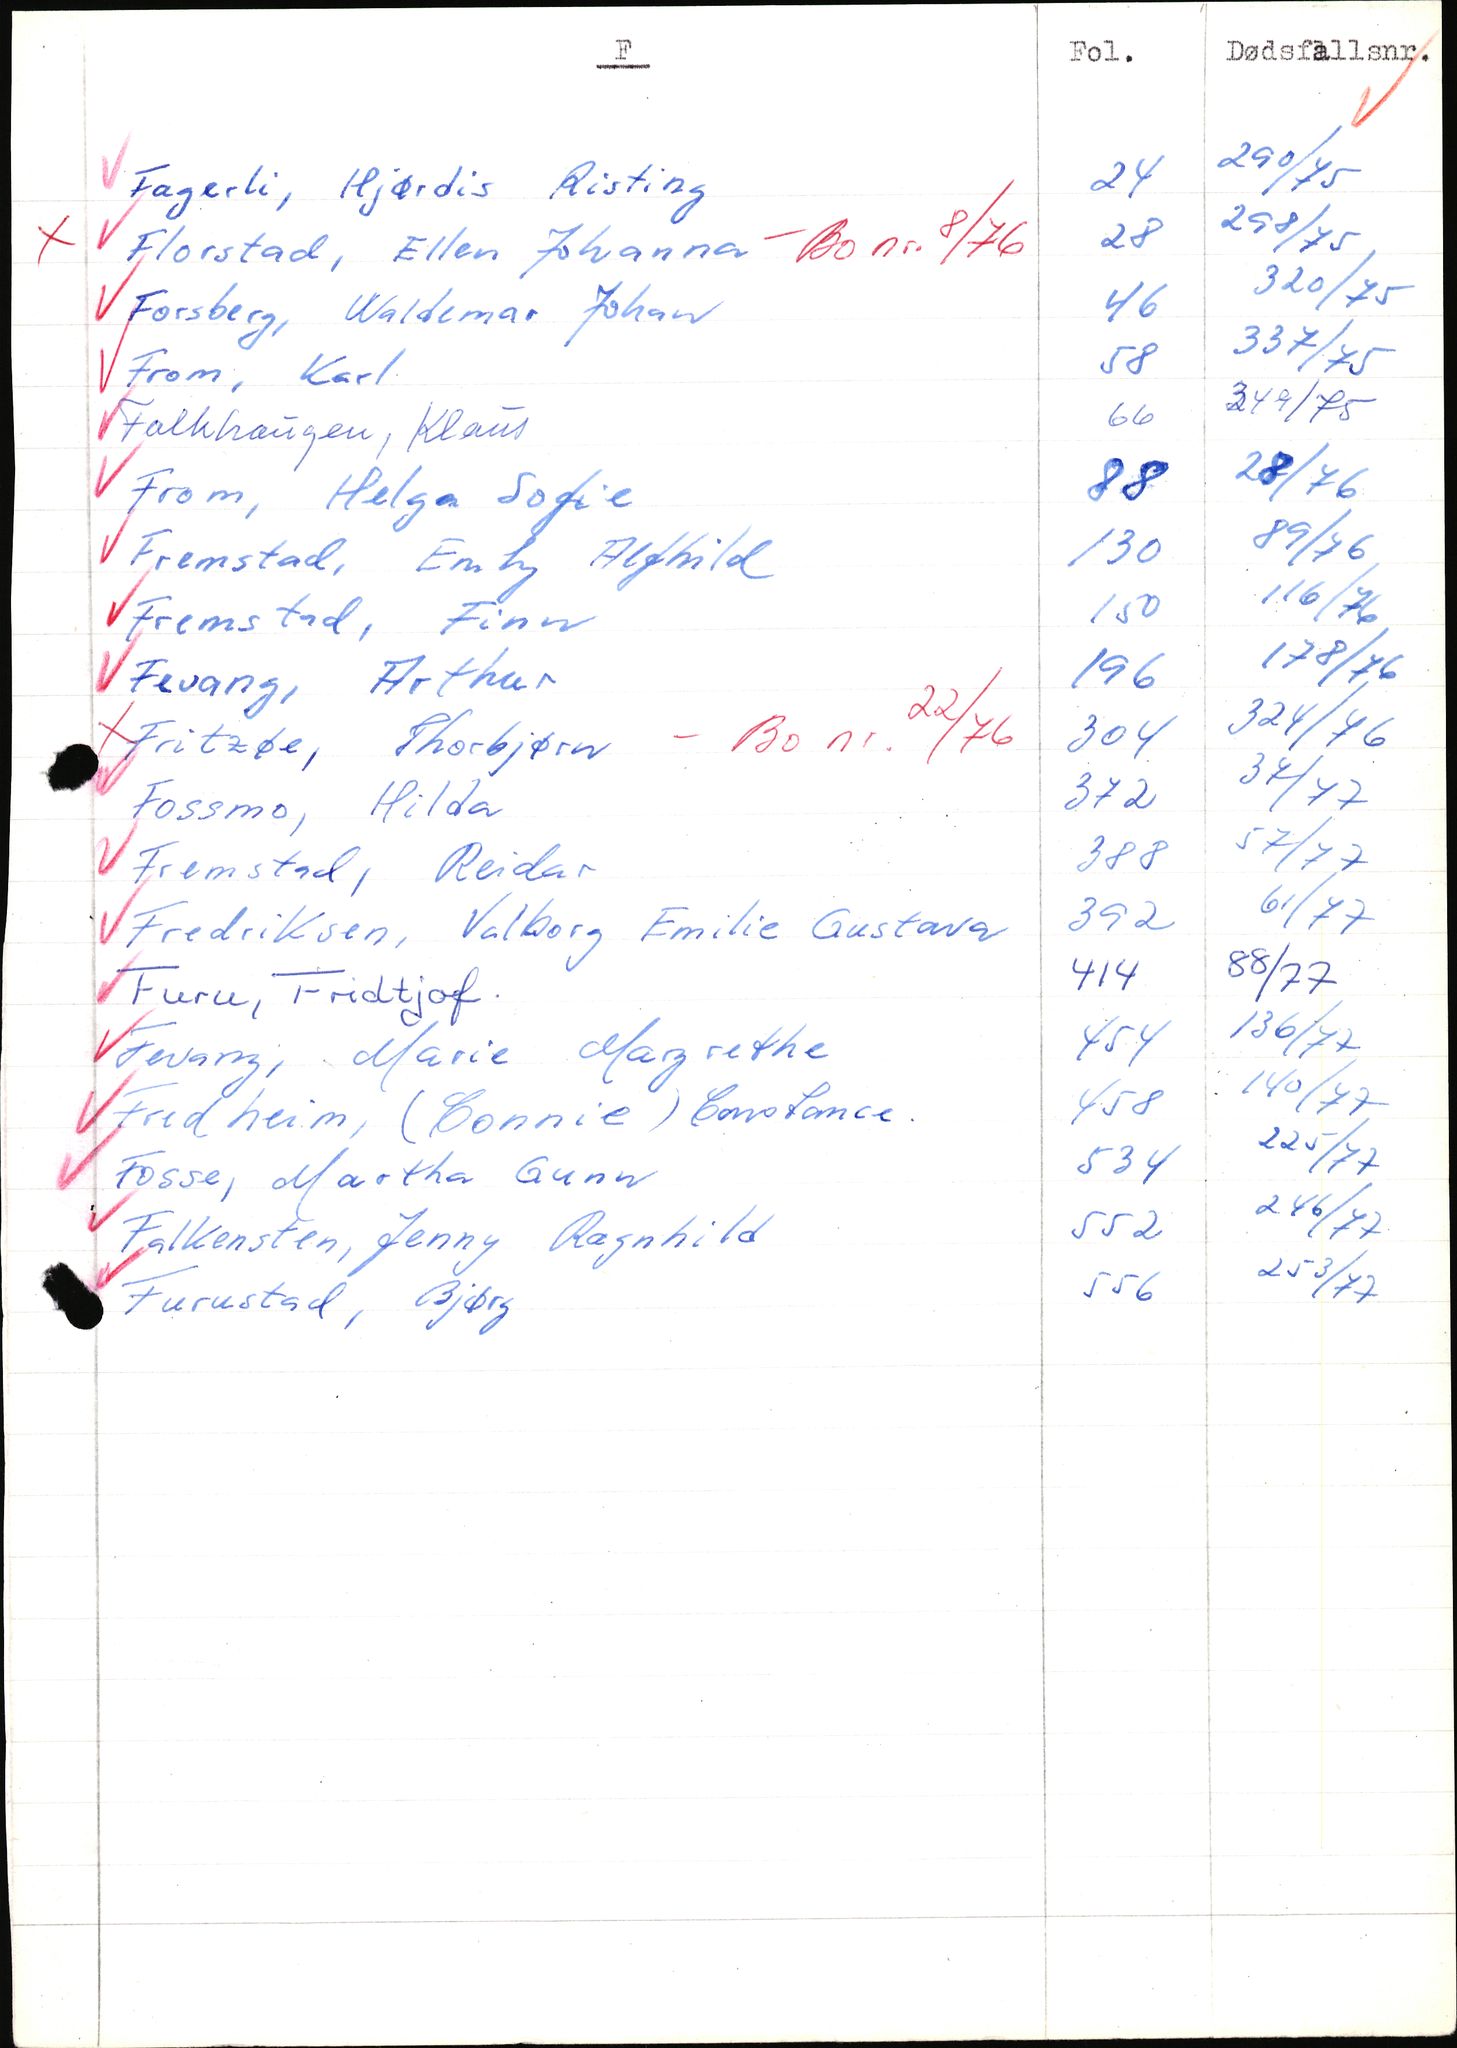 F Fol. Dødsfallsnr.
Fagerli, Hjørdis Risting 24 290/75
Florstad, Ellen Johanna - Bo nr. 8/76 28 298/75
Forsberg, Waldemar Johan 46 320/75
From, Karl 58 337/75
Falkhaugen, Klaus 66 349/75
From, Helga Sofie 88 28/76
Fremstad, Emly Alfhild 130 89/76
Fremstad, Finn 150 116/76
Fevang, Arthur 196 178/76
Fritzøe, Thorbjørn - Bo nr. 22/76 304 324/76
Fossmo, Hilda 372 34/77
Fremstad, Reidar 388 57/77
Fredriksen, Valborg Emilie Gustava 392 61/77
Furu, Fridtjof. 414 88/77
Fevang, Marie Margrethe 454 136/77
Fredheim, (Connie) Constance. 458 140/77
Fosse, Martha Gunn 534 225/77
Falkensten, Jenny Ragnhild 552 246/77
Furustad, Bjørg 556 253/77